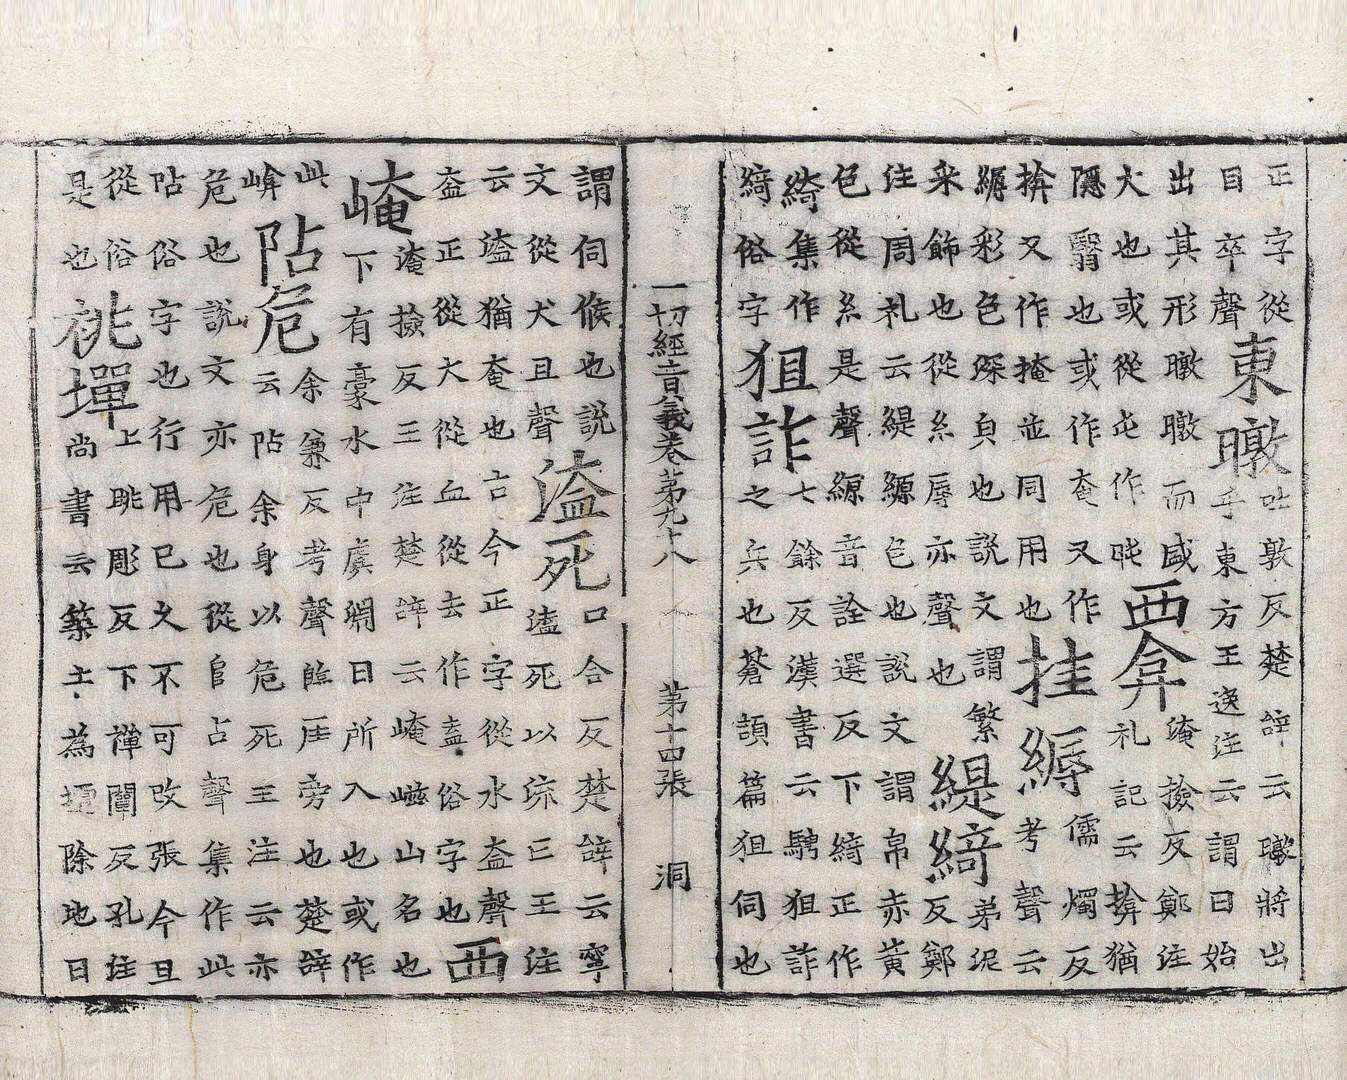 正字從
目卒聲
東暾
吐敦反楚辞云暾將出
乎東方王逸注云謂日始
出其形暾暾而盛
大也或從屯作旽
西弇
淹撿反鄭注
礼記云揜猶
隱翳也或作奄又作
揜又作掩並同用也
挂縟
儒燭反
考聲云
縟彩色皃也說文謂繁
采飾也從糸辱亦聲也
緹綺
弟泥
反鄭
注周礼云緹縓色也說文謂帛赤黃
色從糸是聲縓音詮選反下綺正作
綺集作
綺俗字
狙詐
七餘反漢書云騁狙詐
之兵也蒼頡篇狙伺也
一切經音義卷苐九十八 苐十四張 洞
謂伺候也說
文從犬且聲
溘死
口合反楚辞云寧
溘死以流亡王注
云溘猶奄也古今正字從水盍聲
盍正從大從血從去作盍俗字也
西
崦
淹撿反王注楚辞云崦嵫山名也
下有豪水中虞淵日所入也或作
此
崦
阽危
余簷反考聲臨厓旁也楚辞
云阽余身以危死王注云亦
危也說文亦危也從𨸏占聲集作此
阽俗字也行用已久不可改張今且
從俗
是也
祧墠
上眺彫反下禪闡反孔注
尚書云築土為壇除地曰